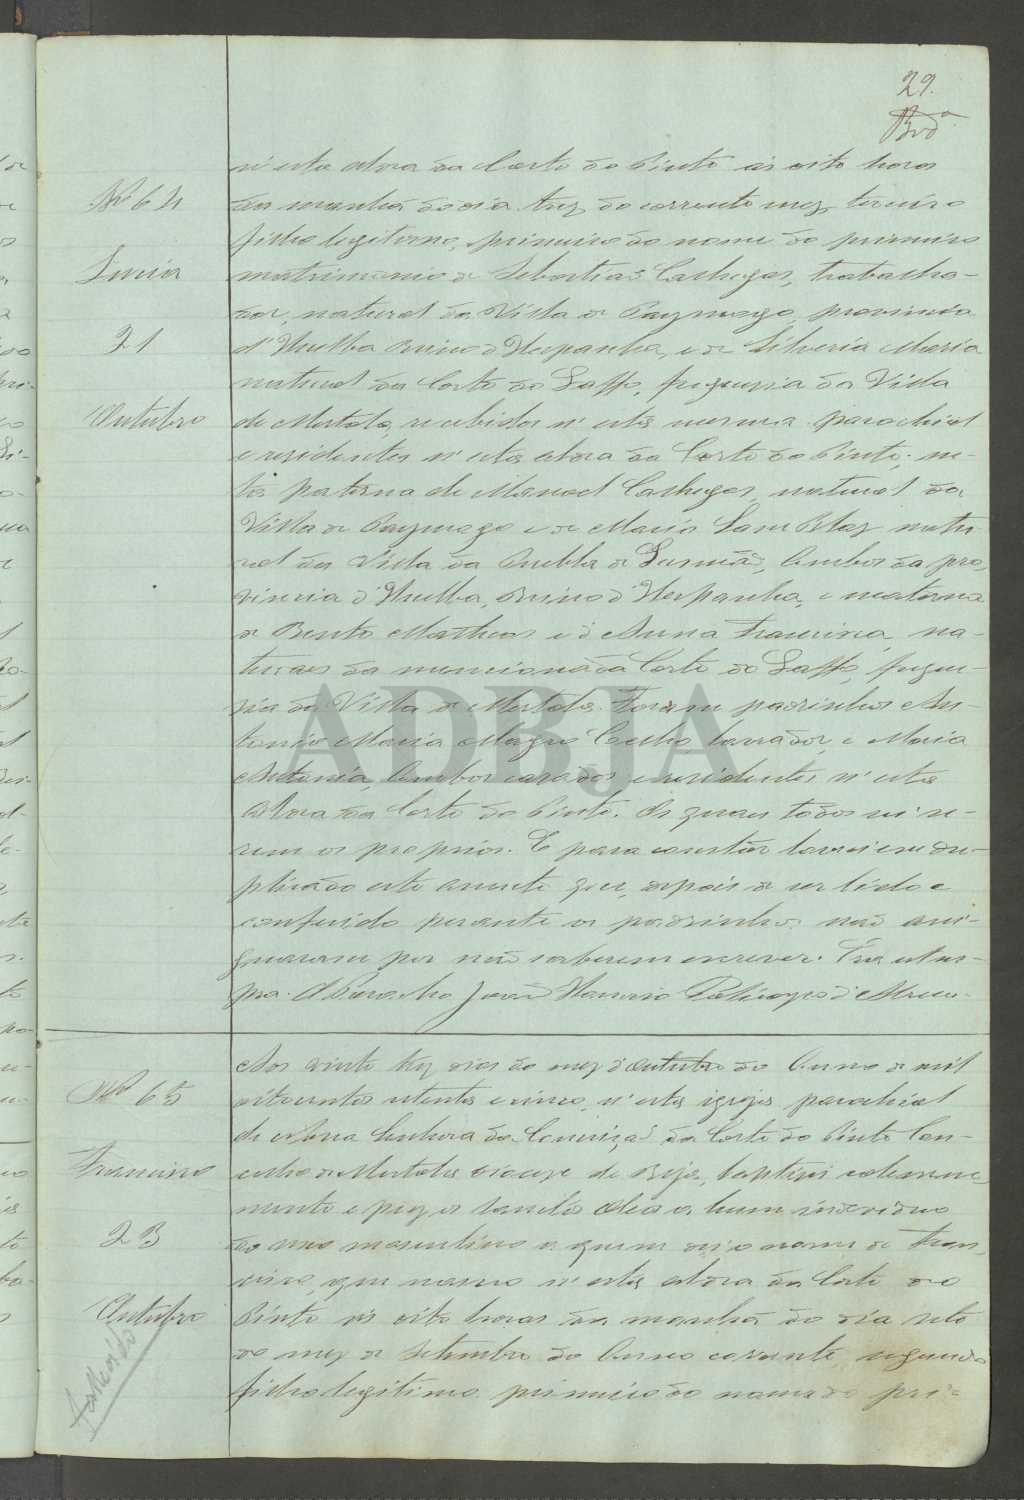 29.
n'esta aldea da Corte do Pinto ás oito horas
Nº 64
da manhã do dia trez do corrente mez, terceiro
filho legitimo, primeiro do nome do primeiro
Lucia
matrimonio de Sebastião, trabalha-
dor, natural da Villa de Paymogo, provincia
21
d'Huelba Reino d'Hespanha, e de Silveria Maria
natural da Corte do Gaffo, freguesia da Villa
Outubro
de Mertola, recebidos n'esta mesma parochial
e residentes n'esta aldea da Corte do Pinto; ne-
ta paterna de Manoel, natural da
Villa de Paymogo e de Maria natu-
ral da Villa da Puebla de Gusmão, ambos da pro-
vincia d'Huelba, Reino d'Hespanha, e materna
de Bento Matheos e d'Anna Francisca, na-
turaes da mencionada Corte do Gaffo, fregue-
sia da Villa de Mertola. Foram padrinhos An-
tonio Maria Coelho, lavrador, e Maria
Antonia, ambos casados e residentes n'esta
aldea da Corte do Pinto. Os quaes todos sei se-
rem os proprios. E para constar lavrei em du-
plicado este assento que, depois de ser lido e
conferido perante os padrinhos não assi-
gnaram por não saberem escrever. Era ut su-
pra. O Parocho João
ADBJA
Nº 65
Aos vinte trez dias do mez d'outubro do anno de mil
oitocentos oitenta e cinco, n'esta igreja parochial
de Nossa Senhora da Conceição da Corte do Pinto Con-
Francisco
celho de Mertola diocese de Beja, baptizei solemne-
mente e puz os Santos Oleos a hum individuo
23
do sexo masculino a quem dei o nome de Fran-
cisco, que nasceu n'esta aldea da Corte do
Outubro
Pinto ás oito horas da manhã do dia sete
do mez de Setembro do anno corrente, segundo
Fallecido
filho legitimo primeiro do nome do pri-